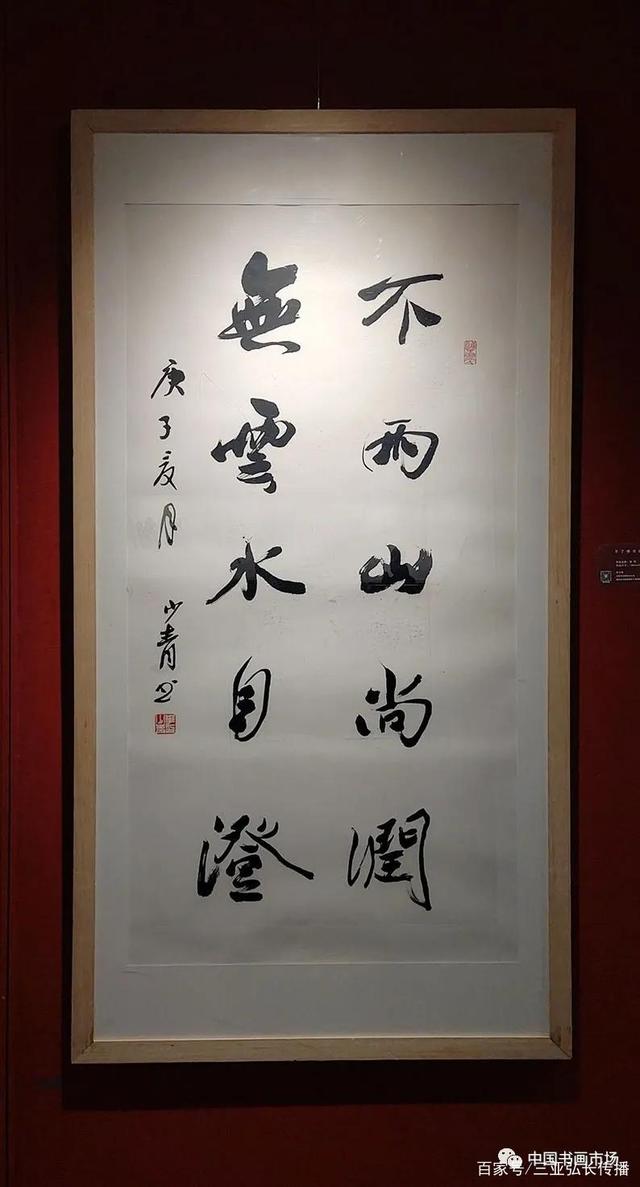 不雨山尚潤
無雲水自澄
庚子夏月 少青书
中国书画市场
百家号/三亚弘长传播